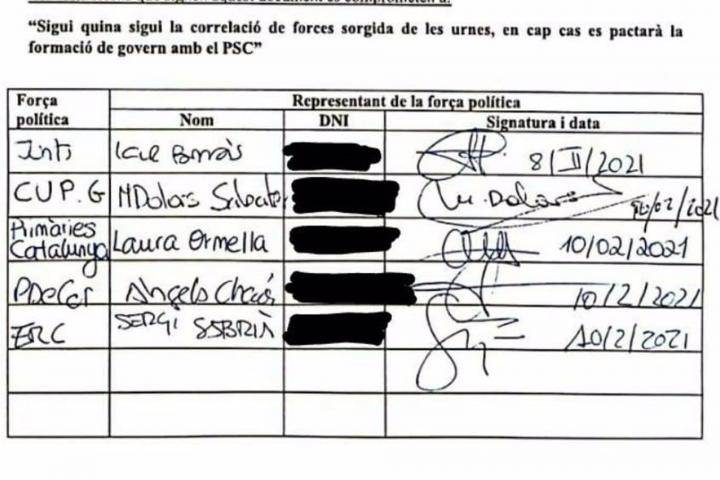 “Sigui quina sigui la correlació de forces sorgida de les urnes, en cap cas es pactarà la
formació de govern amb el PSC”
Força política
Representant de la força política
Nom
DNI
Signatura i data
Junts
8/II/2021
CUP.G
MDolors Sabater
M. Dolors
10/02/2021
Primàries Catalunya
Laura Ormella
10/02/2021
PDeCat
Àngels Chacón
10/2/2021
ERC
SERGI SABRIÀ
10/2/2021